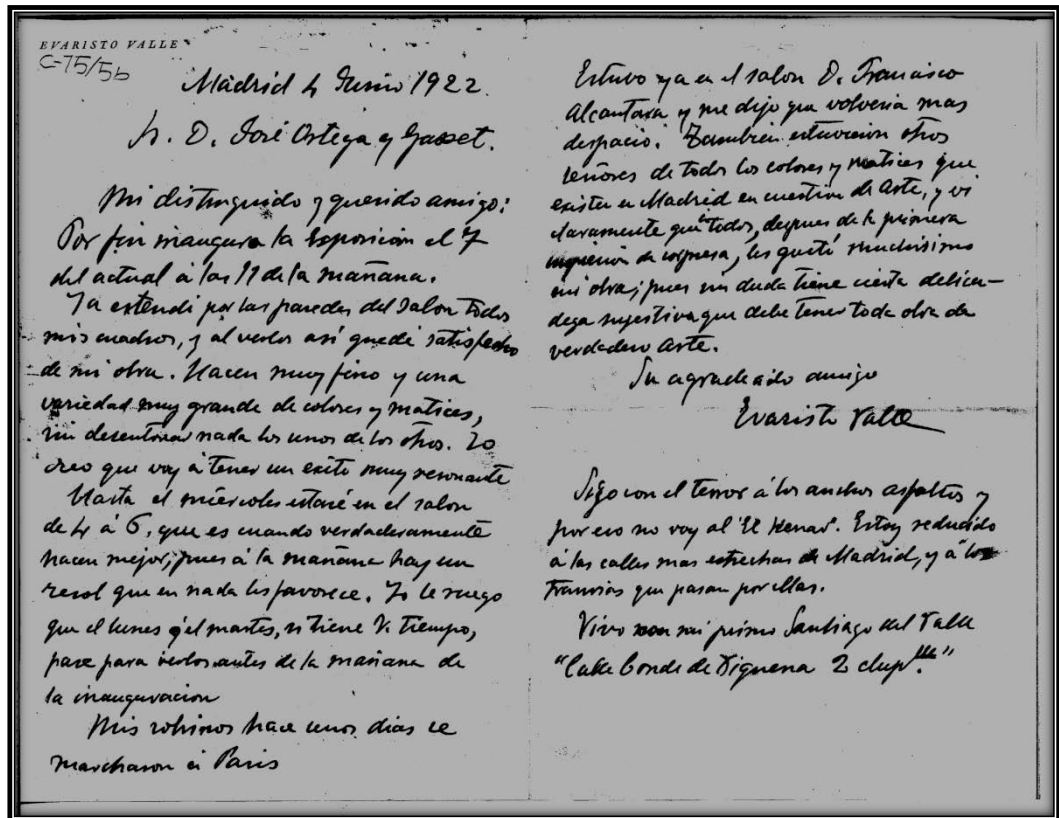 EVARISTO VALLE
C-75/5b
Madrid 4 Junio 1922.
Sr. D. José Ortega y Gasset.
Mi distinguido y querido amigo:
Por fin inaugura la Exposición el 7
del actual á las 11 de la mañana.
Ya estendí por las paredes del Salon todos
mis cuadros, y al verlos así quedé satisfecho
de mi obra. Hacen muy fino y una
variedad muy grande de colores y matices,
sin desentonar nada los unos de los otros. Yo
creo que voy á tener un exito muy resonante
Hasta el miércoles estaré en el salon
de 4 á 6, que es cuando verdaderamente
hacen mejor; pues á la mañana hay un
resol que en nada les favorece. Yo le ruego
que el lunes ó el martes, si tiene V. tiempo,
pase para verlos antes de la mañana de
la inauguracion
Mis sobrinos hace unos dias se
marcharon á Paris
Estuvo ya en el salon D. Francisco
Alcantara y me dijo que volveria mas
despacio. Tambien estuvieron otros
señores de todos los colores y matices que
existen en Madrid en cuestion de Arte, y vi
claramente que á todos, despues de la primera
impresion de sorpresa, les gustó muchisimo
mi obra; pues sin duda tiene cierta delica-
deza sugestiva que debe tener toda obra de
verdadero Arte.
Su agradecido amigo
Evaristo Valle
Sigo con el terror á los anchos asfaltos y
por eso no voy al "El Henar". Estoy reducido
á las calles mas estrechas de Madrid, y á los
tranvias que pasan por ellas.
Vivo con mi primo Santiago del Valle
"Calle Conde de Xiquena 2 dup."